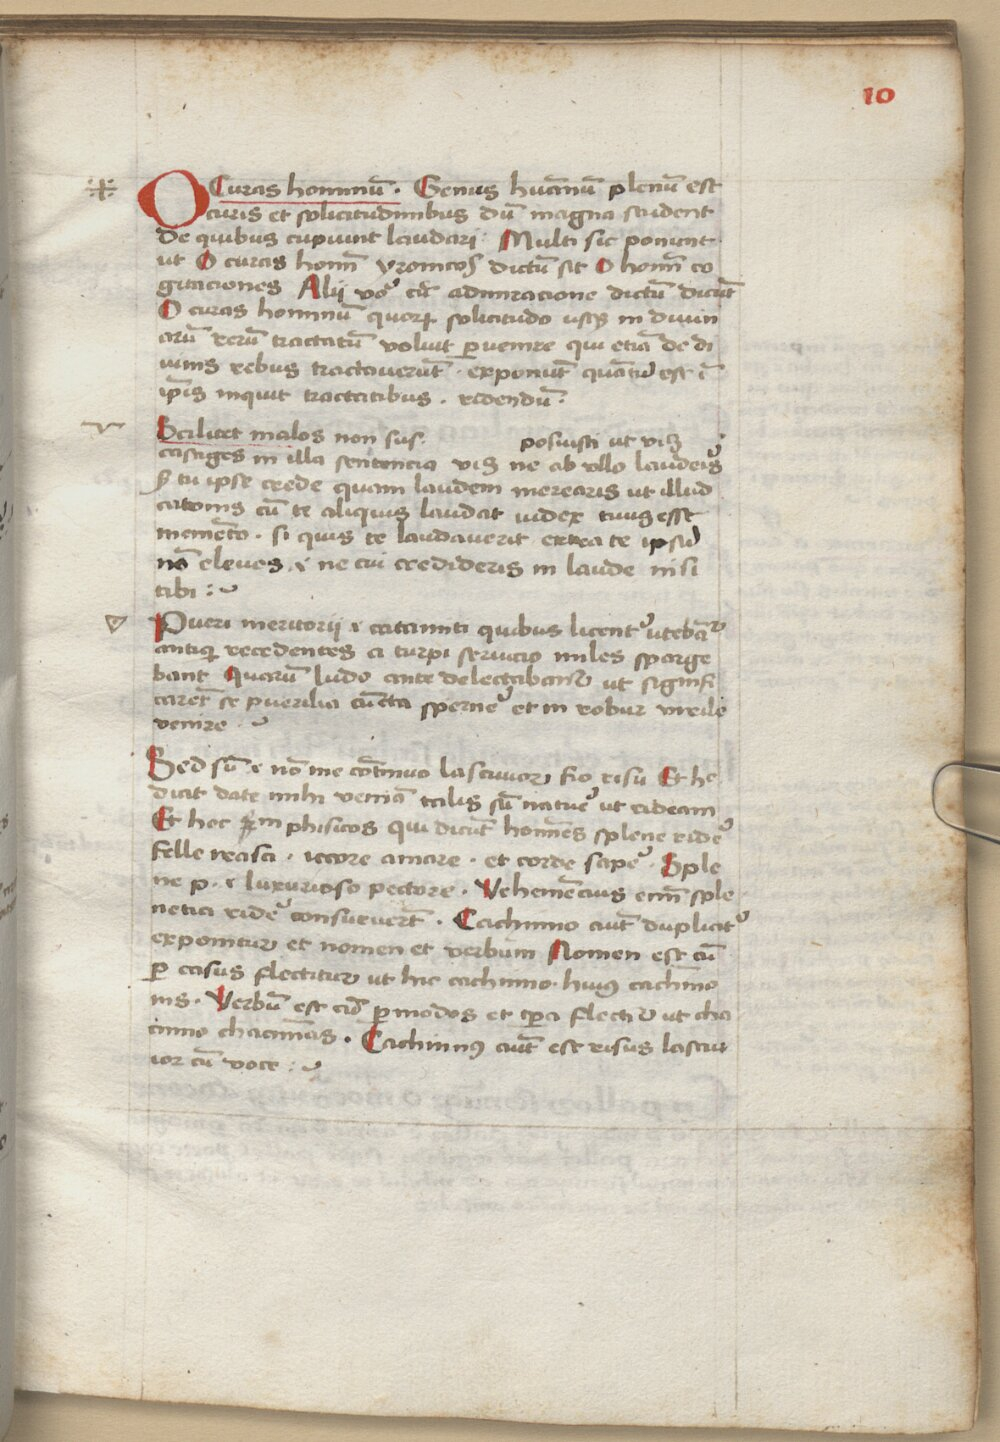 10
O Curas hominū · Genus hūanū plenū est
curis et solicitudinibus dū magna student
de quibus cupiunt laudari · Multi sic ponunt
ut O curas homī yronicos dictū sit O homī co
gitaciones Alij vō cū admiracione dictū dicūt
O curas hominū quorꝝ solicitudo usqꝫ in divin
arū rerū tractatū voluit ꝑvenire qui etiā de di
vinis rebus tractaverūt · exponūt quātū est ī
ip̄is inquit tractatibus · ridendū ·
Scilicet malos non sus posuisti ut vꝫ
castiges in illa sentencia vꝫ ne ab ullo lauderis
sꝫ tu ipse crede quam laudem merearis ut illud
catonis cū te aliquis laudat iudex tuus esse
memēto · si quis te laudaverit extra te ipsū
nō eleves · & ne cui credideris in laude nisi
tibi :
Pueri meritorij & catamiti quibus licent utebāt
antiqꝫ recedentes a turpi servicio nuces sparge
bant Quarū ludo ante delectabant ut signifi
caret se puerilia cūcta sperne et in robur virile
venire ·
Sed sū & nō me cōtinuo lascivior fio risu Et he
dicit date mihi veniā talis sū natue ut rideam
Et hec phisicos qui dicūt homēs splene ride
felle irasci · iecore amare · et corde sape · Sple
ne p · & luxurioso pectore · Vehemēcius enī sple
netici ride consueverūt · Cachinno aūt duplicit
exponitur et nomen et verbum Nomen est cū
ꝑ casus flectitur ut hic cachinno · huiꝰ cachinno
nis · Verbū est cū ꝑ modos et tp̄a flectit ut cha
cinno chacinnas · Cachinnꝰ aūt est risus lasciv
ior cū voce :